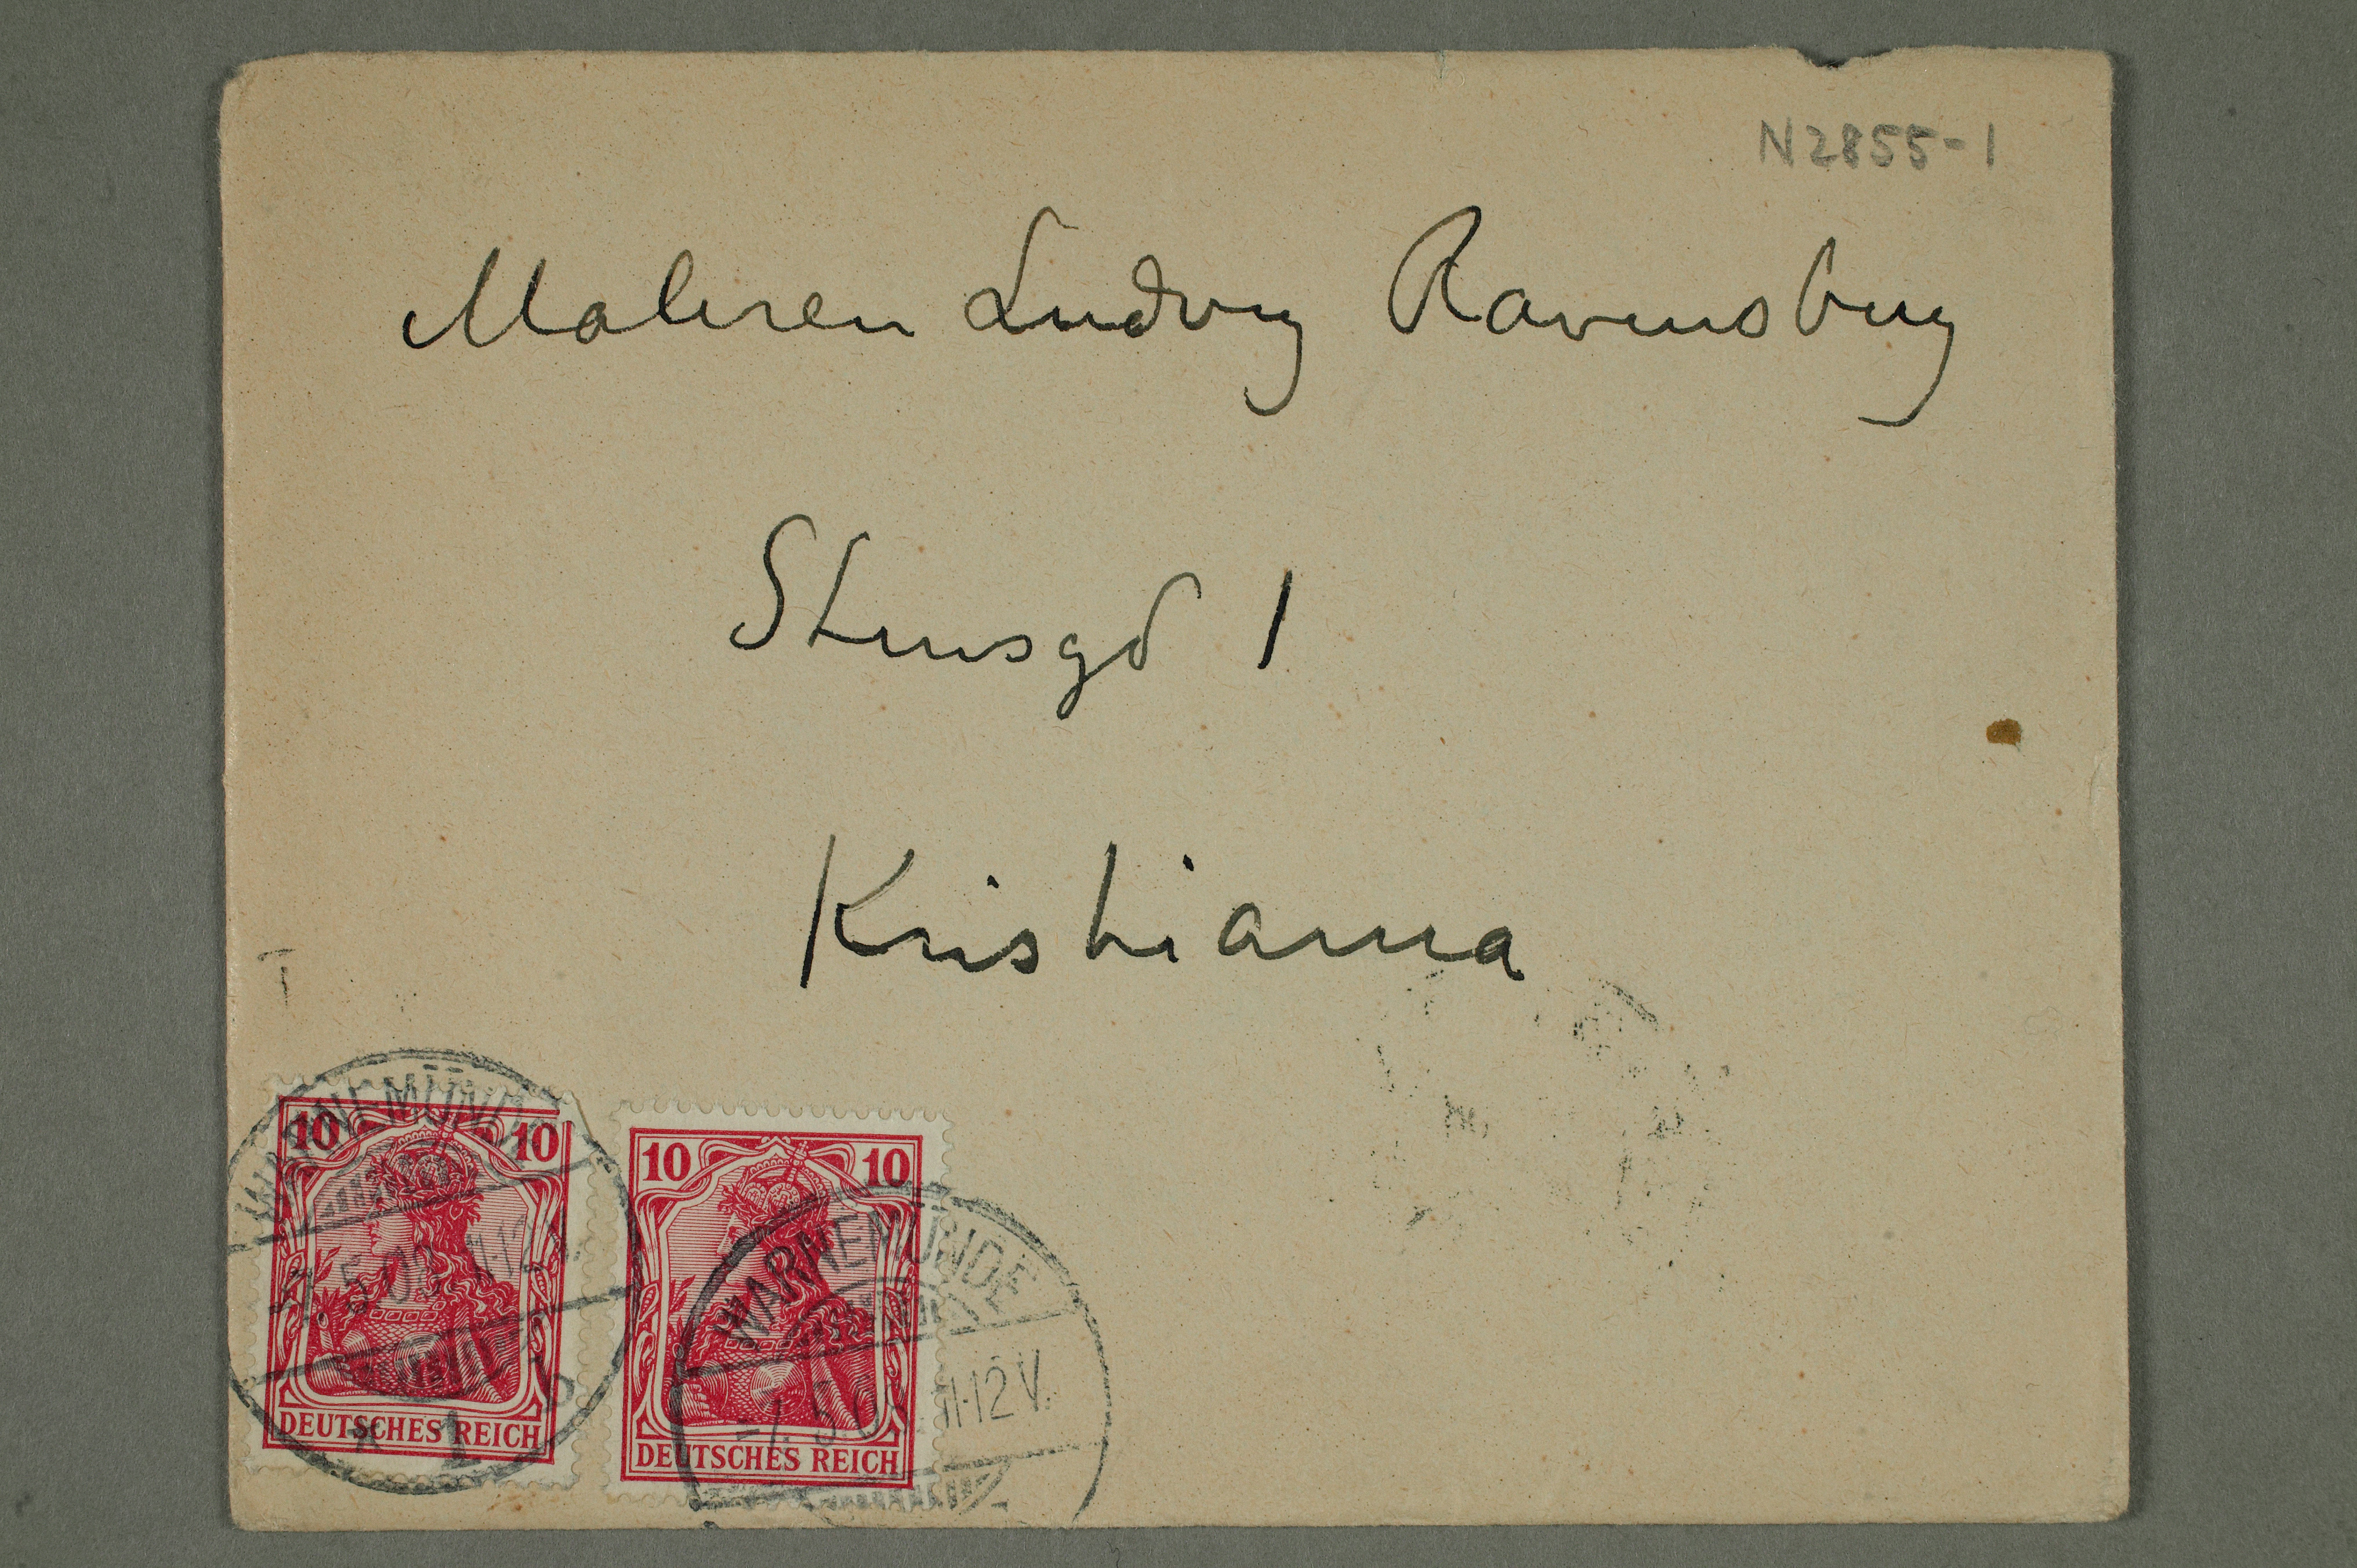 N2855-1
Maleren Ludvig Ravensberg
Stensgd 1
Kristiania
T
10 10
DEUTSCHES REICH
WARNEMÜNDE
* 1 b
10 10
DEUTSCHES REICH
WARNEMÜNDE
11-12 V.